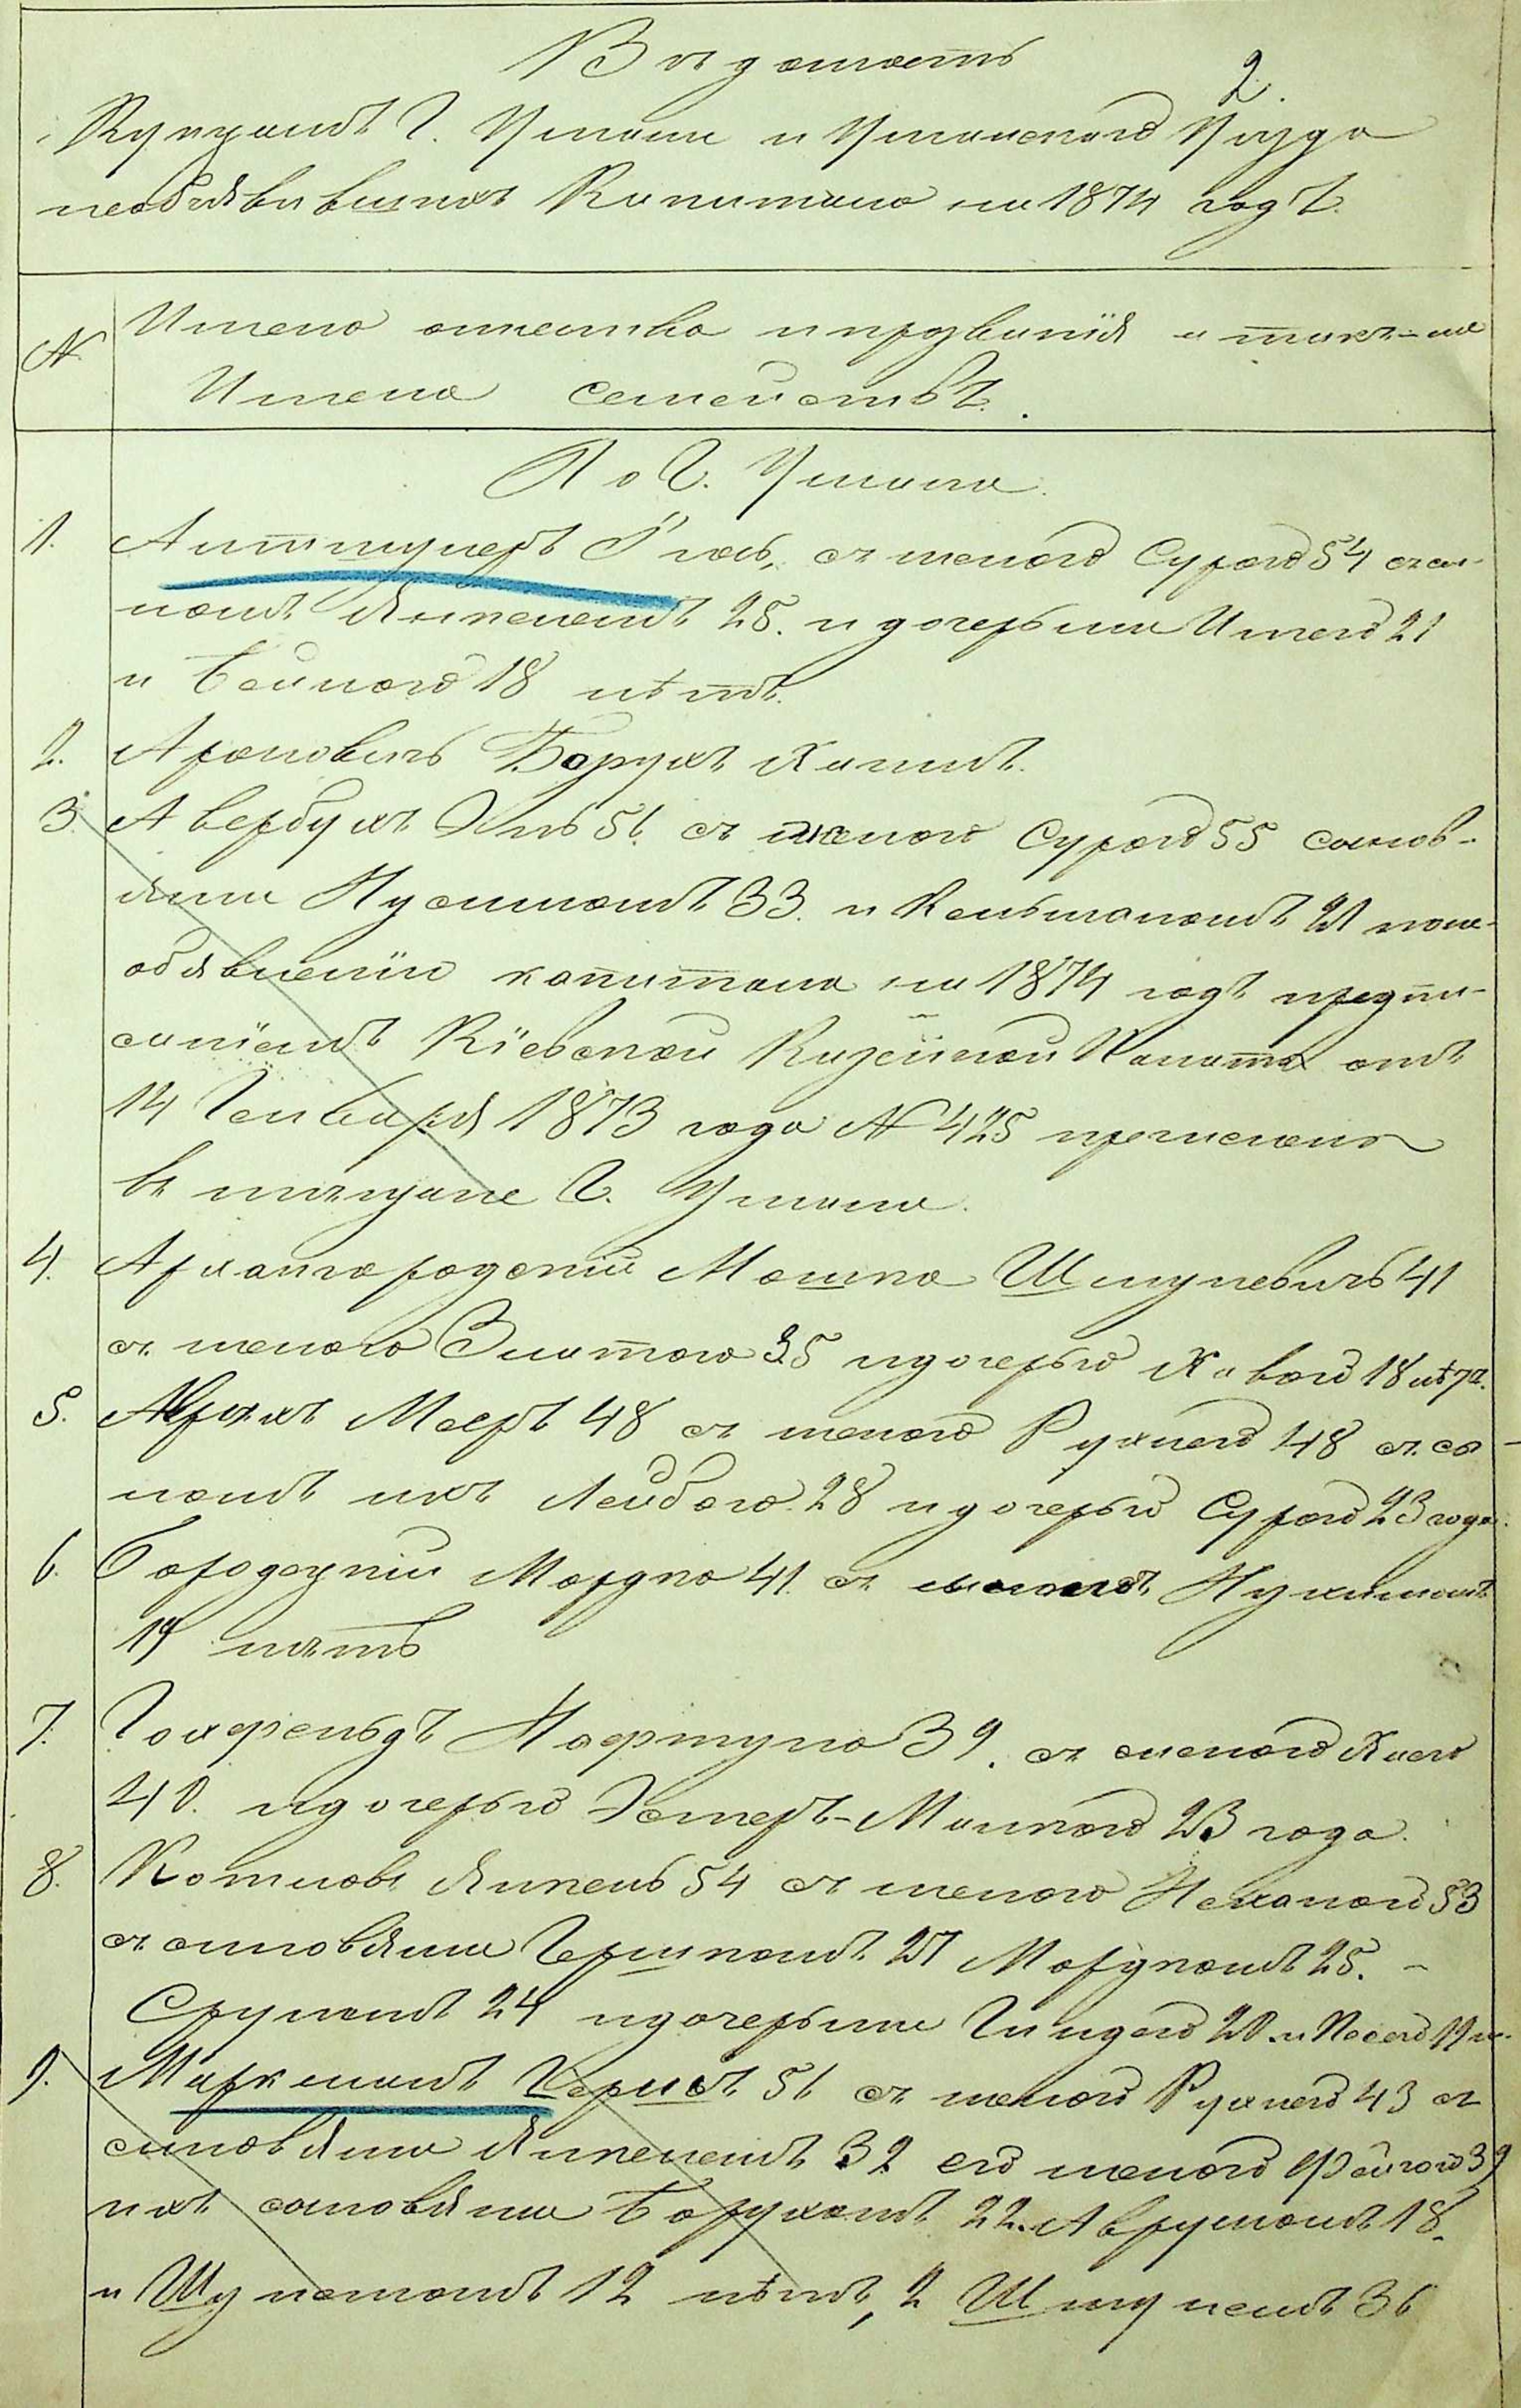 Вѣдомость
2.
Купцамъ Г. Умани и Уманскаго Уѣзда
необъявившихъ Капитала на 1874 годъ.
№ Имена отчества и прозванія а такъ-же
Имена семействъ.
По Г. Умани.
1. Антшулеръ Гось, съ женою Сурою 54 сы-
номъ Янкелемъ 25. и дочерьми Итею 21
и Бейлою 18 лѣтъ.
2. Ароновичъ Борухъ Хаимъ.
3. Авербухъ Эль 56. съ женою Сурою 55 сынов-
ями Нусимомъ 33. и Кельманомъ 21 поне-
объявленіи капитала на 1874 годъ предпи-
саніемъ Кіевской Казенной Палаты отъ
14 Генваря 1873 года № 425 причислены
въ мѣщане Г. Умани.
4. Архангородскій Мошко Шмулевичъ 41
съ женою Златою 35 идочерью Хавою 18 лѣтъ.
5. Мееръ 48 съ женою Рухлею 48 съ сы-
номъ ихъ Лейбою 28 идочерью Сурою 23 года.
6. Бородецкій Мордко 41. съ сыномъ Нухимомъ
19 лѣтъ
7. Гохфельдъ Нафтула 39. съ женою Хаею
40. идочерью Эстеръ-Малкою 23 года.
8. Котловъ Янкель 54 съ женою Неханою 53
съ сыновьями Гершкомъ 27 Мордкомъ 25. -
Срулемъ 24 идочерьми Гиндею 20 и Песею 19 л.
9. Маркманъ Гершъ 56 съ женою Рухлею 43 съ
сыновьями Янкелемъ 32 его женою Фейгою 39
ихъ сыновьями Борухомъ 22. Аврумомъ 18.
и Шулемомъ 12 лѣтъ, 2 Шмулемъ 36